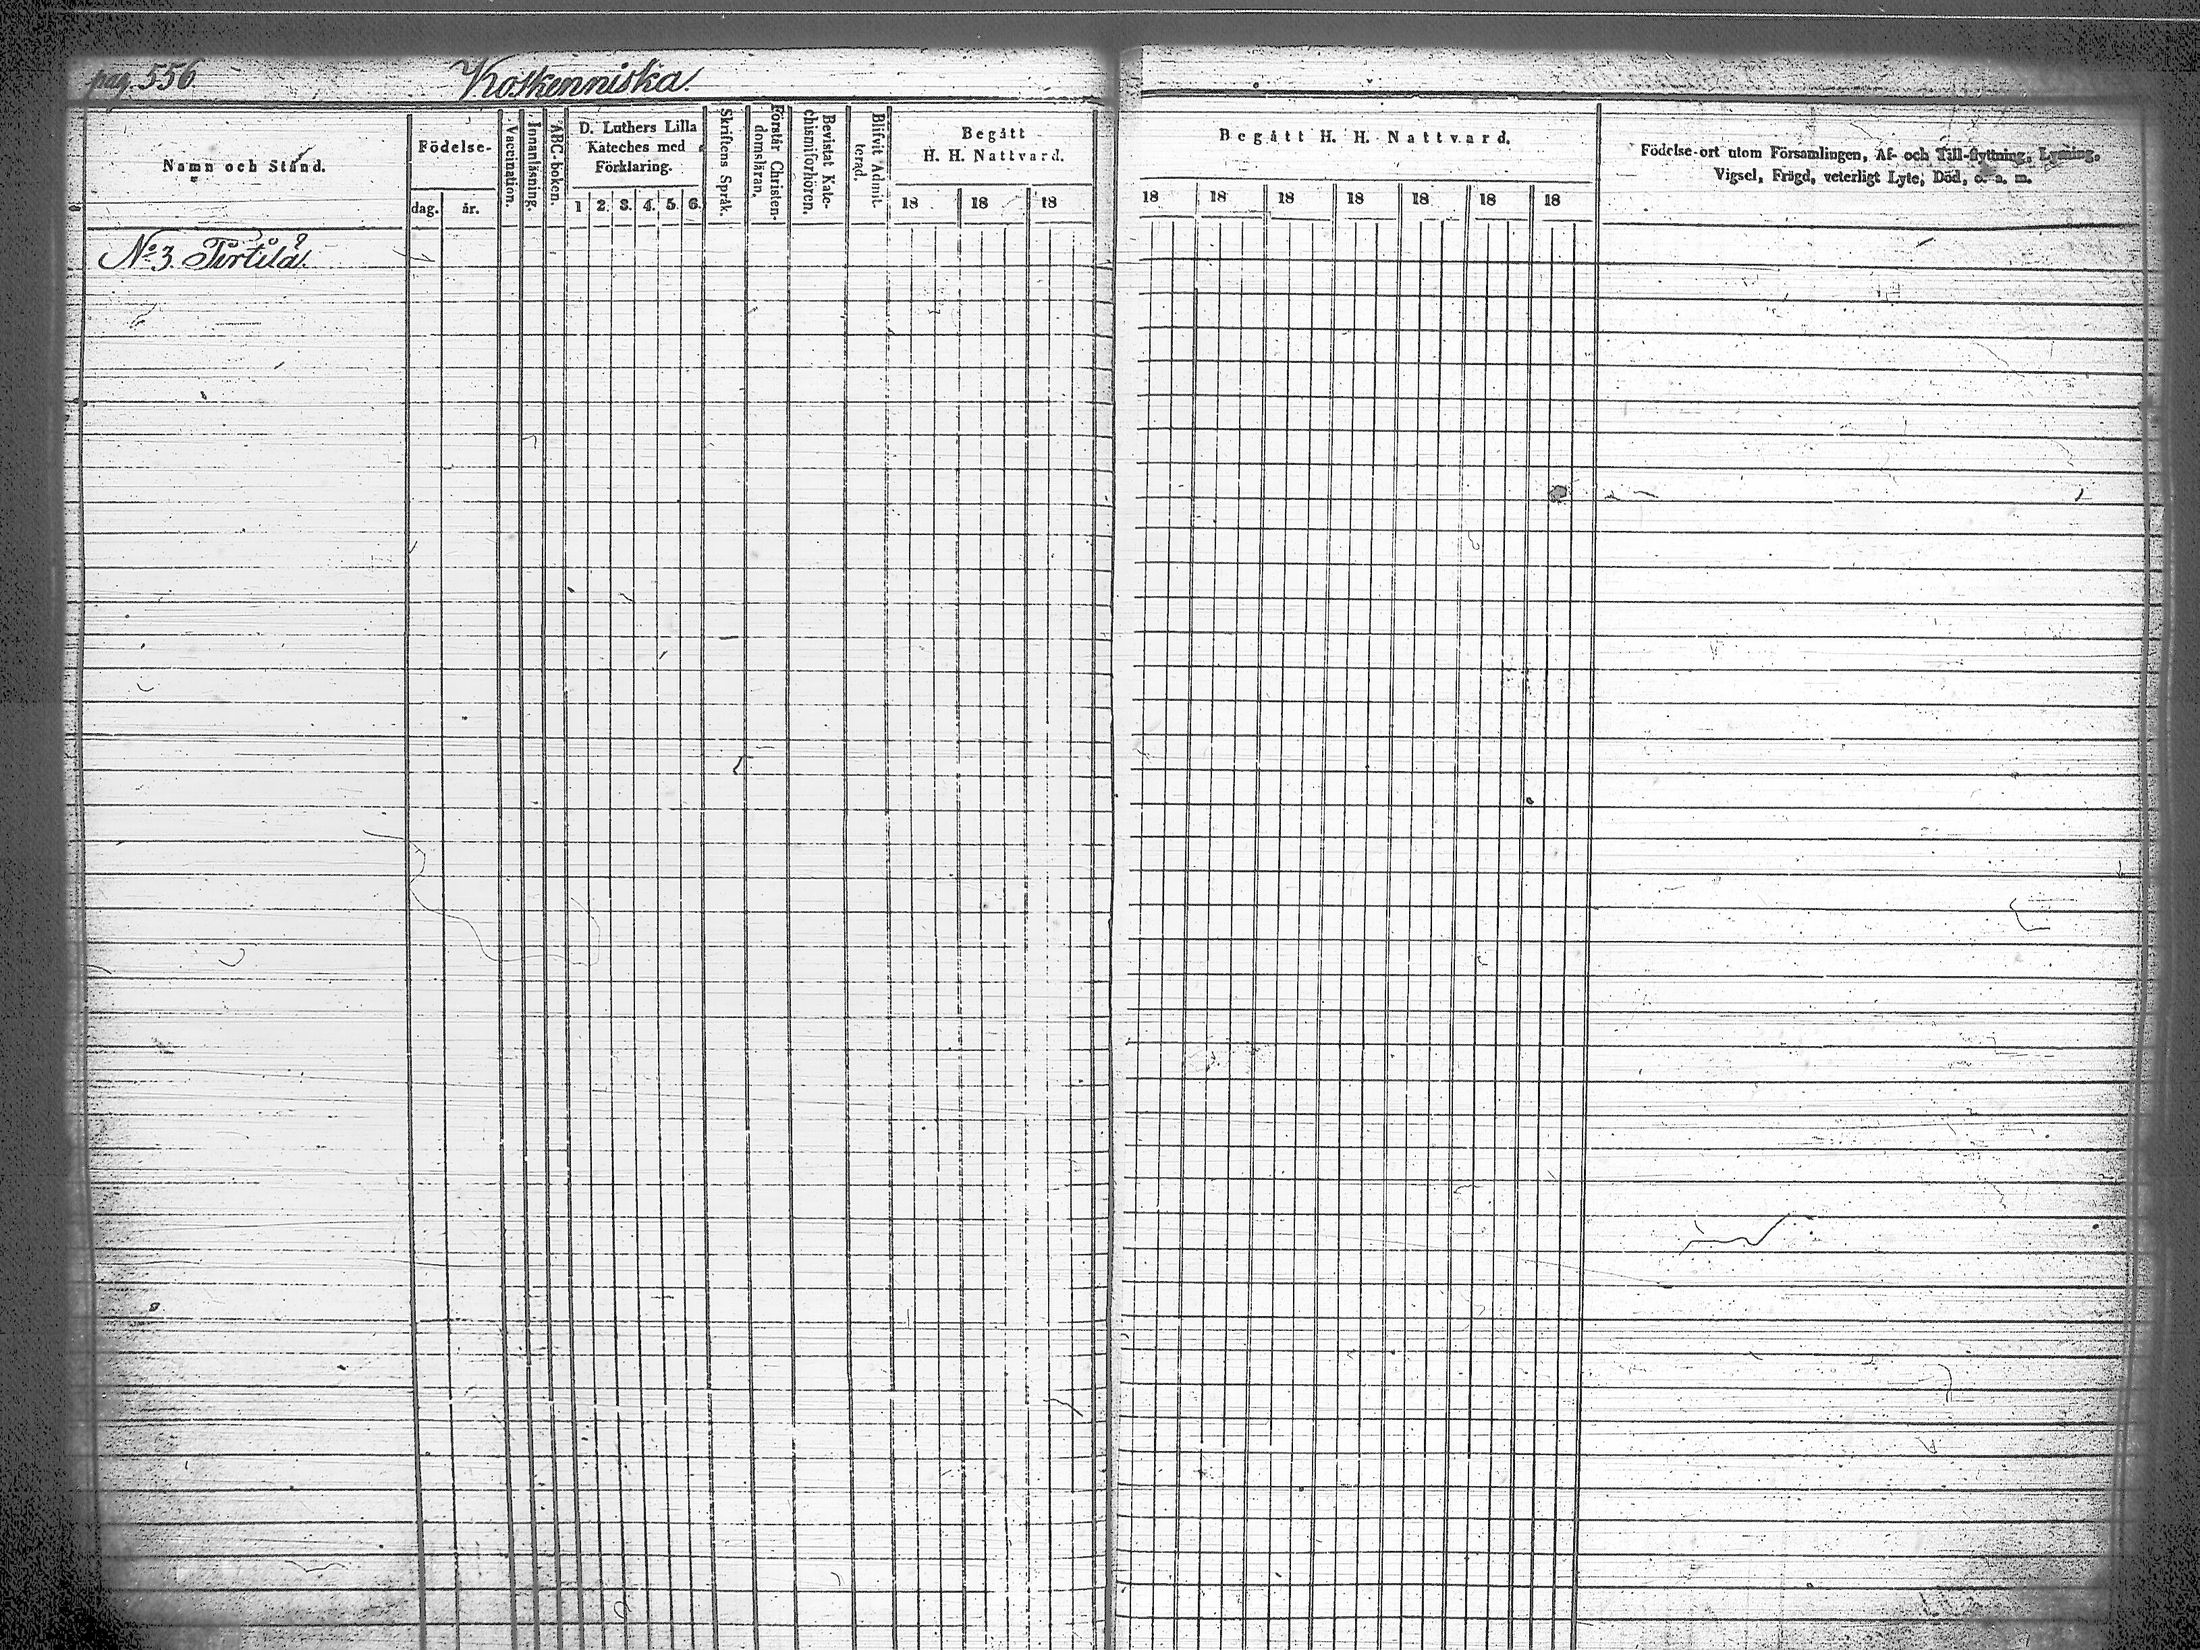 pag. 556
Koskenniska
Namn och Stånd.
Födelse-
dag. år.
Vaccination.
Innanläsning.
ABC-boken.
D. Luthers Lilla
Kateches med
Förklaring.
1 2. 3. 4. 5. 6.
Skriftens Språk.
Förstår Christen-
domsläran.
Bevistat Kate-
chismiförhören.
Blifvit Admit-
terad.
Begått
H. H. Nattvard.
18 18 18
Begått H. H. Nattvard.
18 18 18 18 18 18 18
Födelse-ort utom Församlingen, Af- och Till-flyttning, Lysning,
Vigsel, Frägd, veterligt Lyte, Död, o. a. m.
No 3.